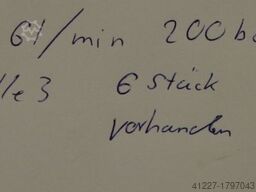 6l/min 200b
lle 3 6 Stück
vorhanden
41227-1797043